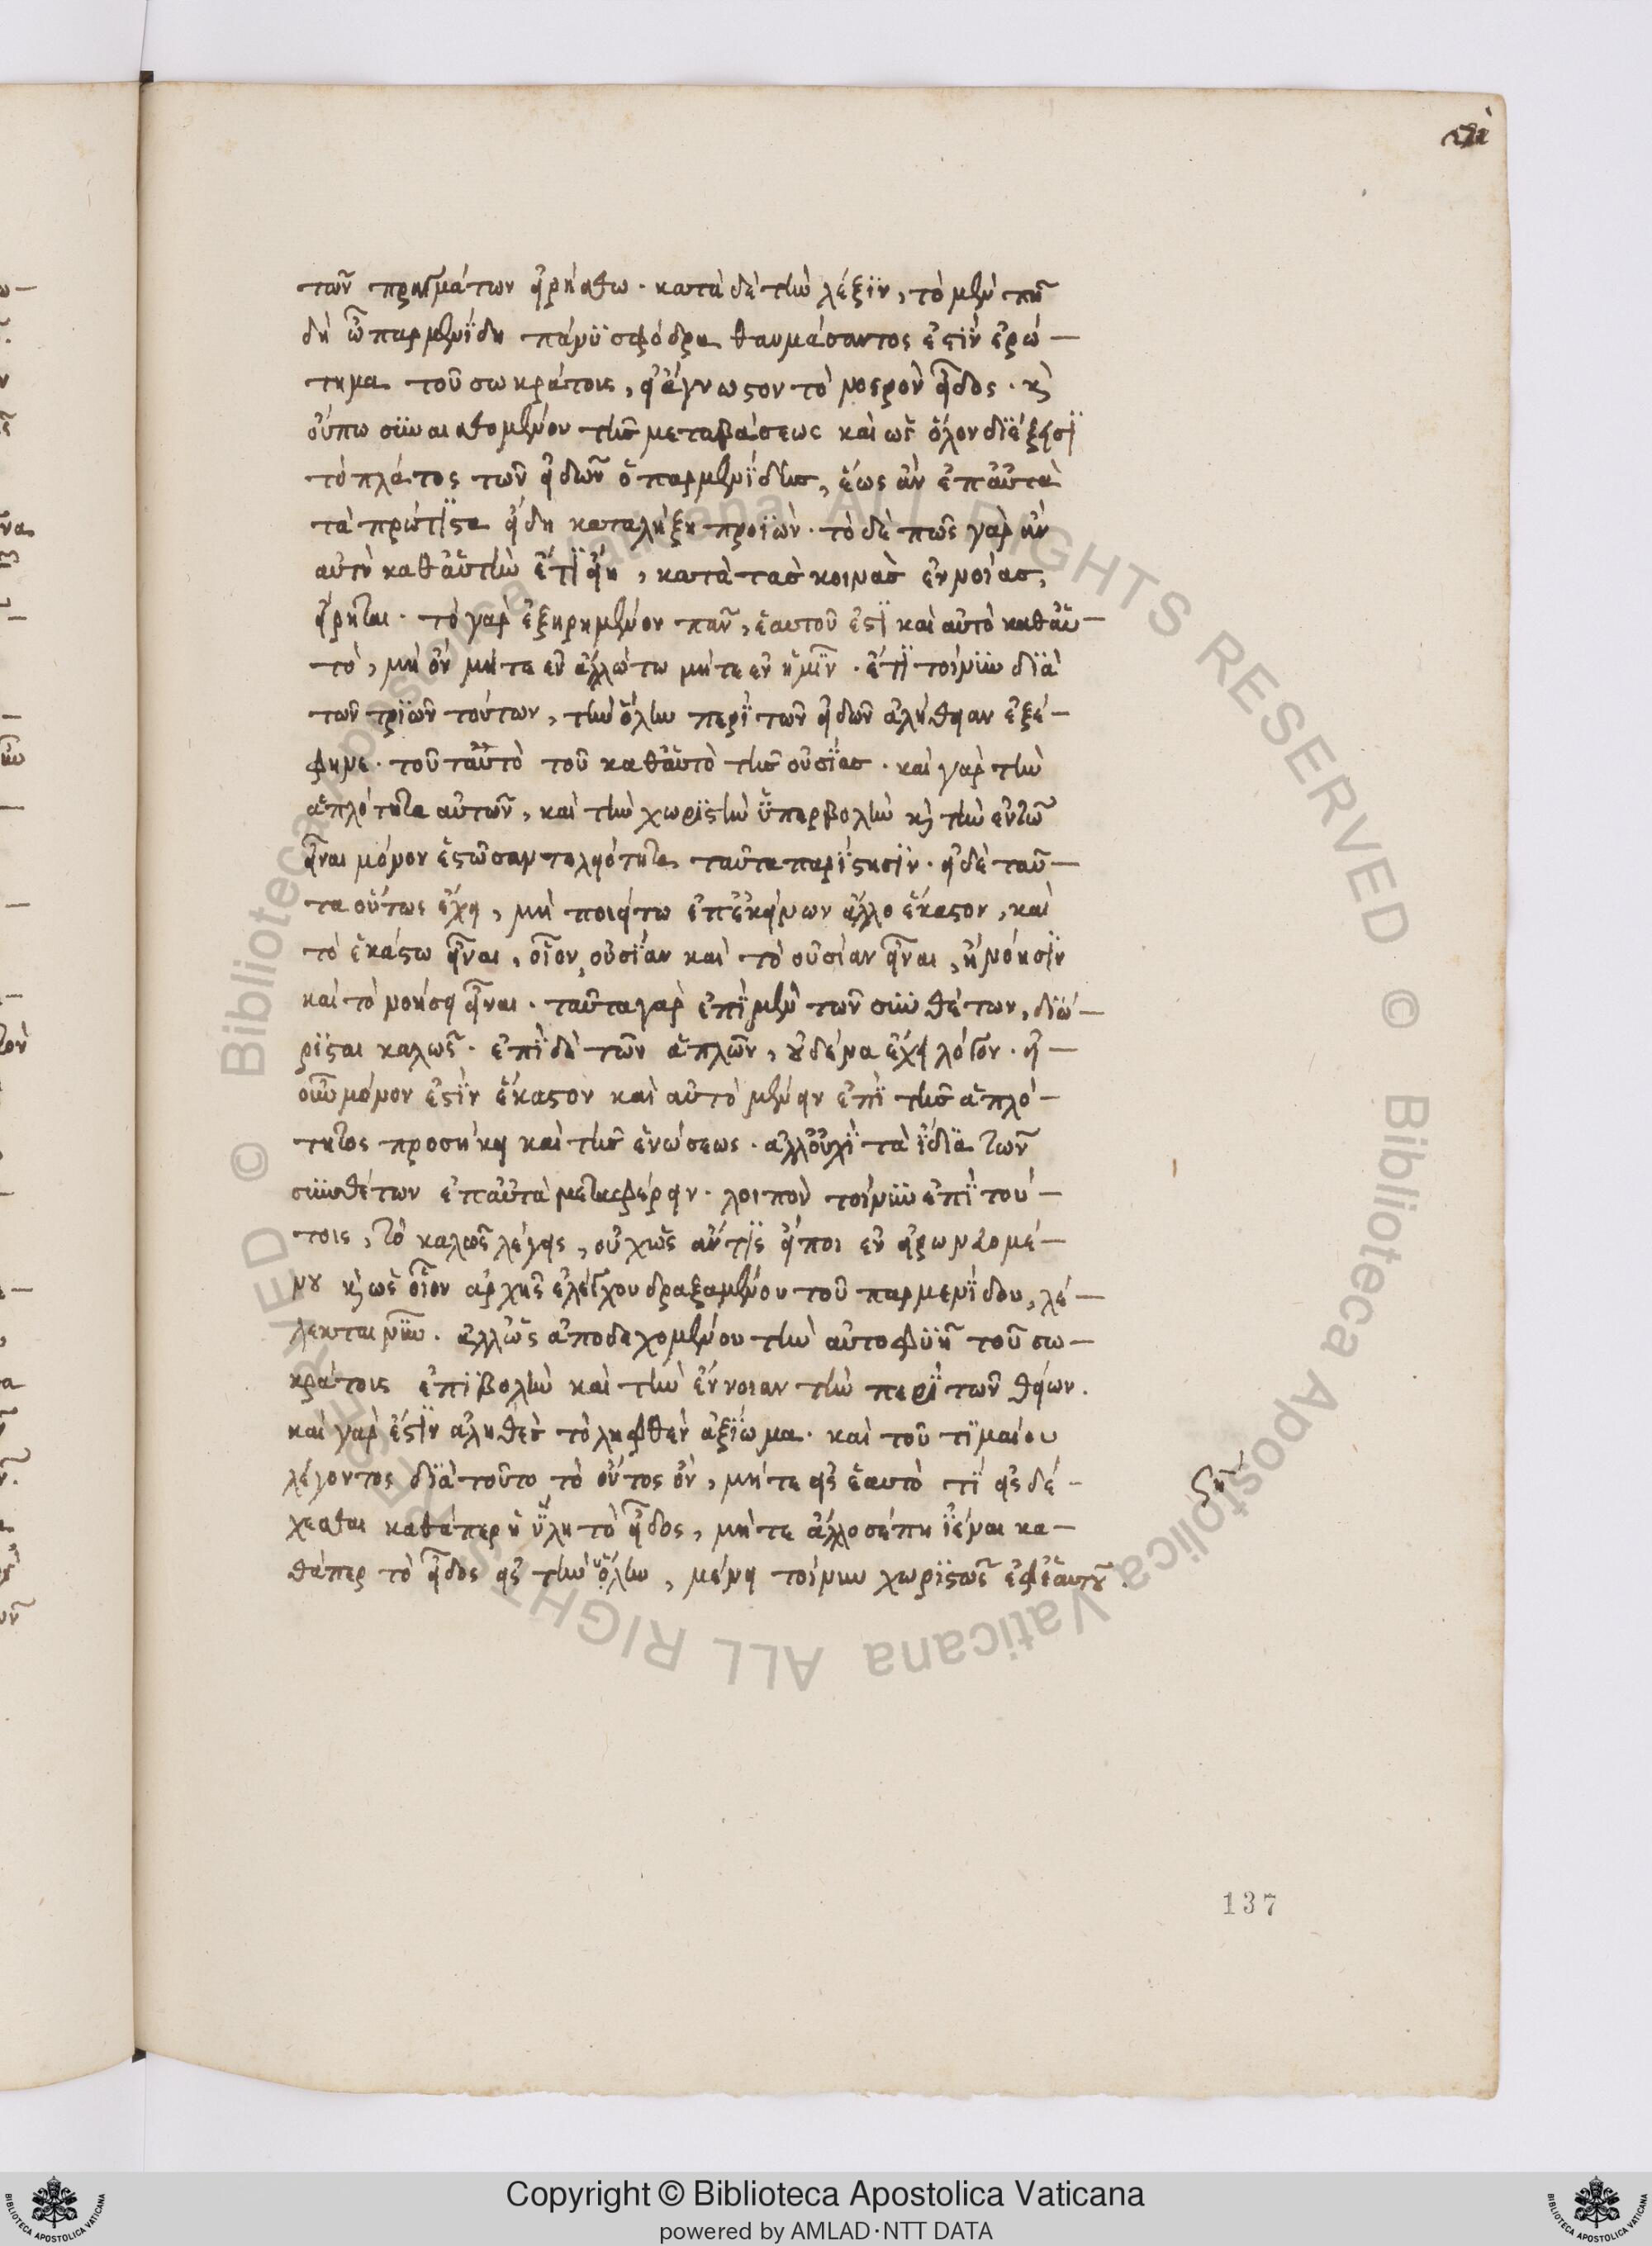 των πραγμάτων εἰρήσθω · κατὰ δὲ τὴν λέξϊν, τὸ μὲν πῆ
δὴ ὦ παρμενίδη πάνϋ σφόδρα θαυμάσαντος ἐστὶν ἐρώ —
τημα τοῦ σωκράτους, εἰ ἄγνωστον τὸ νοερὸν εἶδος · κὶ
οὔπω συναισθομένου τῆς μεταβάσεως καὶ ὡς ὅλον διέξεισι
τὸ πλάτος τῶν εἰδῶν ὁ παρμενίδης, ἕως ἂν ἐπ αὐτὰ
τὰ πρώτιστα εἴδη καταλήξη προϊών · τὸ δὲ πῶς γὰρ ἂν
αὐτὴ καθ αὑτὴν ἔτι εἴη, κατὰ τὰς κοινὰς ἐννοίας,
εἴρηται · τὸ γὰρ ἐξῃρημένον πᾶν, ἑαυτοῦ ἐστι καὶ αὐτὸ καθ αὑ —
τό, μὴ ὂν μήτε ἐν ἄλλω τω μήτε ἐν ἡμῖν · ἔτι τοίνυν διὰ
τῶν τριῶν τούτων, τὴν ὅλην περὶ τῶν εἰδῶν ἀλήθειαν ἐξέ —
φηνε · τοῦ ταὐτὸ τοῦ καθ αὑτὸ τῆς οὐσίας · καὶ γὰρ τὴν
ἁπλότητα αὐτῶν, καὶ τὴν χωριστὴν ὑπερβολὴν κὶ τὴν ἐν τῶ
εἶναι μόνον ἑστῶσαν τελειότητα ταῦτα παρίστησιν · εἰ δὲ ταῦ —
τα οὕτως ἔχει, μὴ ποιείτω ἐπ ἐκείνων ἄλλο ἕκαστον, καὶ
τὸ ἑκάστω εἶναι, οἷον οὐσίαν καὶ τὸ οὐσίαν εἶναι, ἢ νόησιν
καὶ τὸ νοήσει εἶναι · ταῦτα γὰρ ἐπὶ μὲν τῶν συνθέτων, διώ —
ρισται καλῶς · ἐπὶ δὲ τῶν ἁπλῶν, οὐδένα ἔχει λόγον · εἰ —
οὖν μόνον ἐστὶν ἕκαστον καὶ αὐτὸ μένειν ἐπὶ τῆς ἁπλό —
τητος προσήκει καὶ τῆς ἑνώσεως · ἀλλ οὐχὶ τὰ ἴδια τῶν
συνθέτων ἐπ αὐτὰ μεταφέρειν · λοιπὸν τοίνυν ἐπὶ τού —
τοις, τὸ καλῶς λέγεις, οὐχ ὡς ἄν τις εἴποι ἐν εἰρωνευομέ —
νου κὶ ὡς οἷον ἀρχῆς ἐλέγχου δραξαμένου τοῦ παρμενίδου, λέ —
λεκται νῦν · ἀλλ ὡς ἀποδεχομένου τὴν αὐτοφυῆ τοῦ σω —
κράτους ἐπιβολὴν καὶ τὴν ἔννοιαν τὴν περὶ τῶν θείων .
καὶ γὰρ ἐστὶν ἀληθὲς τὸ ληφθὲν ἀξίωμα · καὶ τοῦ τιμαίου
λέγοντος διὰ τοῦτο τὸ ὄντος ὄν, μήτε εἰς ἑαυτὸ τὶ εἰσδέ —
χεσθαι καθάπερ ἡ ὕλη τὸ εἶδος, μήτε ἄλλοσέ πη ἰέναι κα —
θάπερ τὸ εἶδος εἰς τὴν ὅλην, μένει τοίνυν χωριστῶς ἐφ ἑαυτοῦ .
137
Copyright © Biblioteca Apostolica Vaticana
powered by AMLAD·NTT DATA